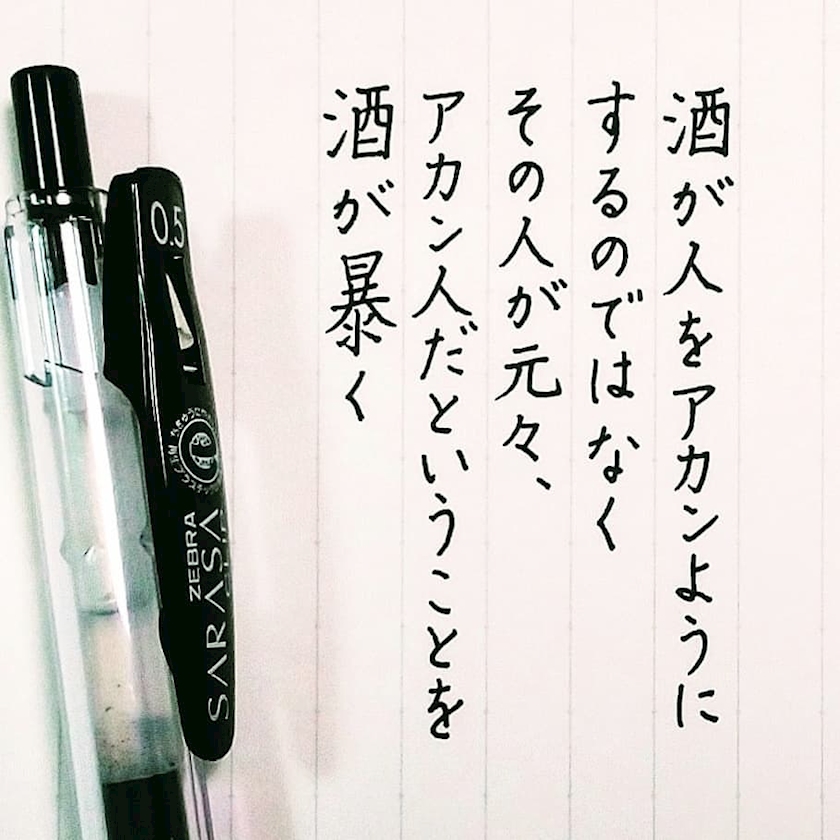 酒が人をアカンように
するのではなく
その人が元々、
アカン人だということを
酒が暴く
0.5
ZEBRA
SARASA